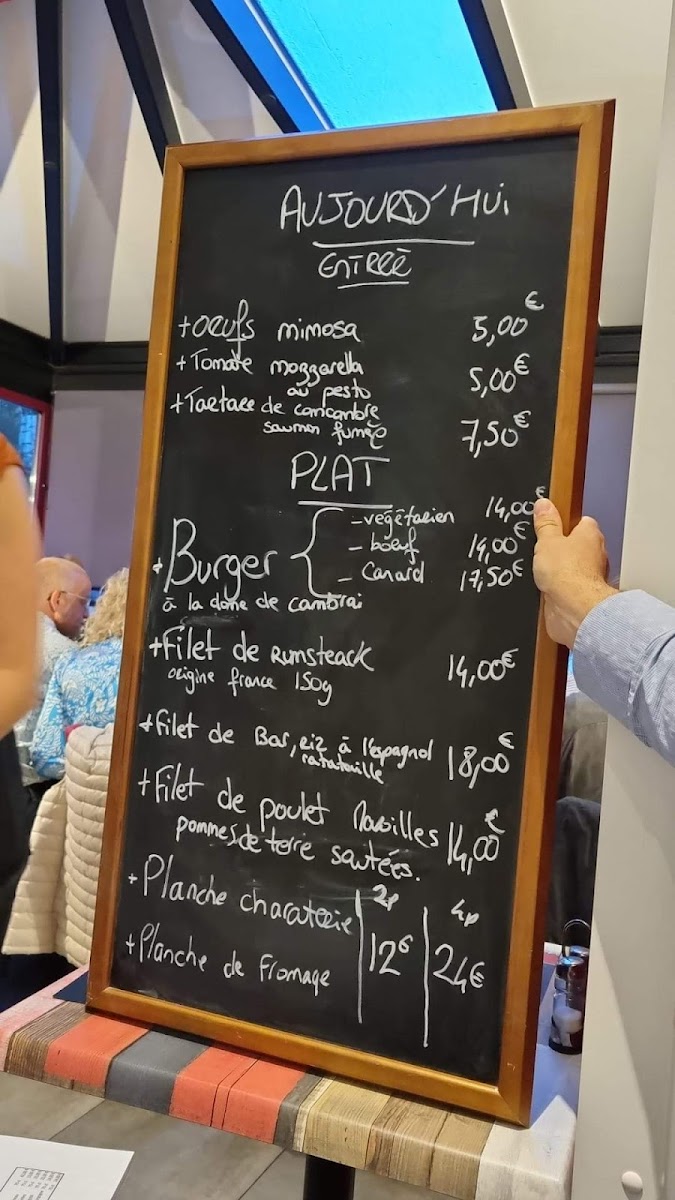 AUJOURD'HUi
ENTREÈ
+ OEUFS mimosa 5,00€
+ Tomate mozzarella
au pesto 5,00€
+ Tartare de concombre
saumon fumée 7,50€
PLAT
- végétarien 14,00€
+ Burger - boeuf 14,00€
- Canard 17,50€
à la dome de cambrai
+ Filet de Rumsteack 14,00€
origine france 150g
+ Filet de Bar, riz à l'espagnol 18,00€
ratatouille
+ Filet de poulet 14,00€
pommes de terre sautées.
2p 4p
+ Planche charcuterie
+ Planche de Fromage 12€ 24€